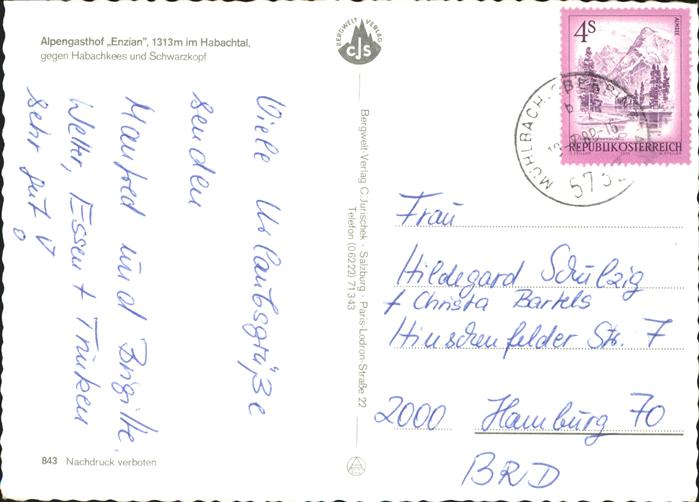 Alpengasthof „Enzian", 1313m im Habachtal,
gegen Habachkees und Schwarzkopf
BERGWELT VERLAG
CJS
4S
ALMSEE
REPUBLIK ÖSTERREICH
MÜHLBACH
573
Viele Urlaubsgrüße
senden
Manfred und Brigitte.
Wetter, Essen + Trinken
sehr gut!
Bergwelt-Verlag C. Jurischek - Salzburg - Paris-Lodron-Straße 22
Telefon (06222) 71343
Frau
Hildegard Schulzig
+ Christa Bartels
Hinschenfelder Str. 7
2000 Hamburg 70
BRD
843 Nachdruck verboten